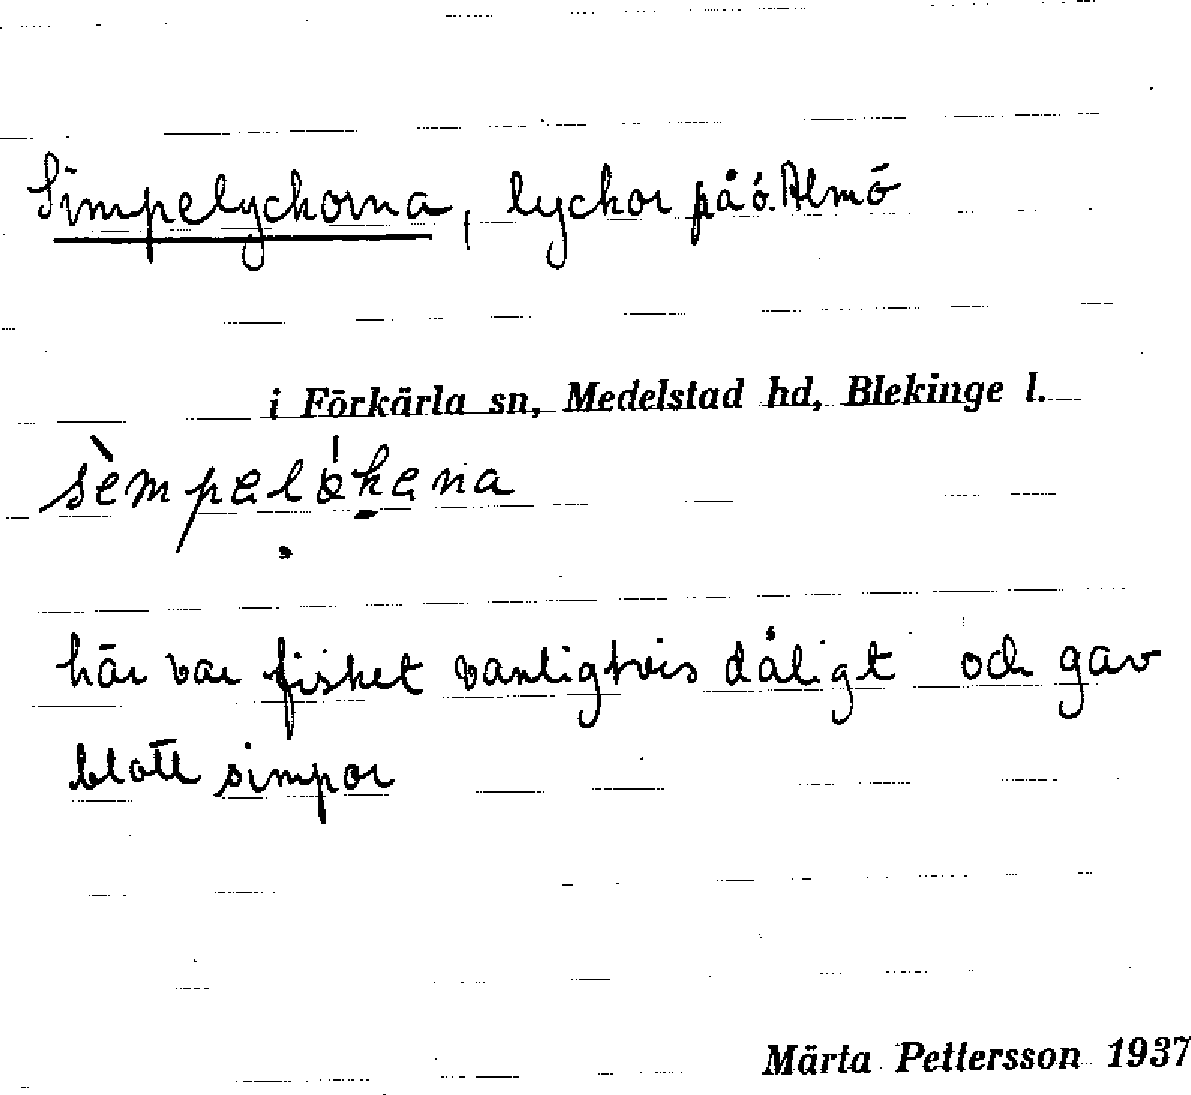 Simpelyckorna, lyckor på ö. Almö
i Förkärla sn, Medelstad hd, Blekinge l.
här var fisket vanligtvis dåligt och gav
blott simpor
Märta Pettersson 1937